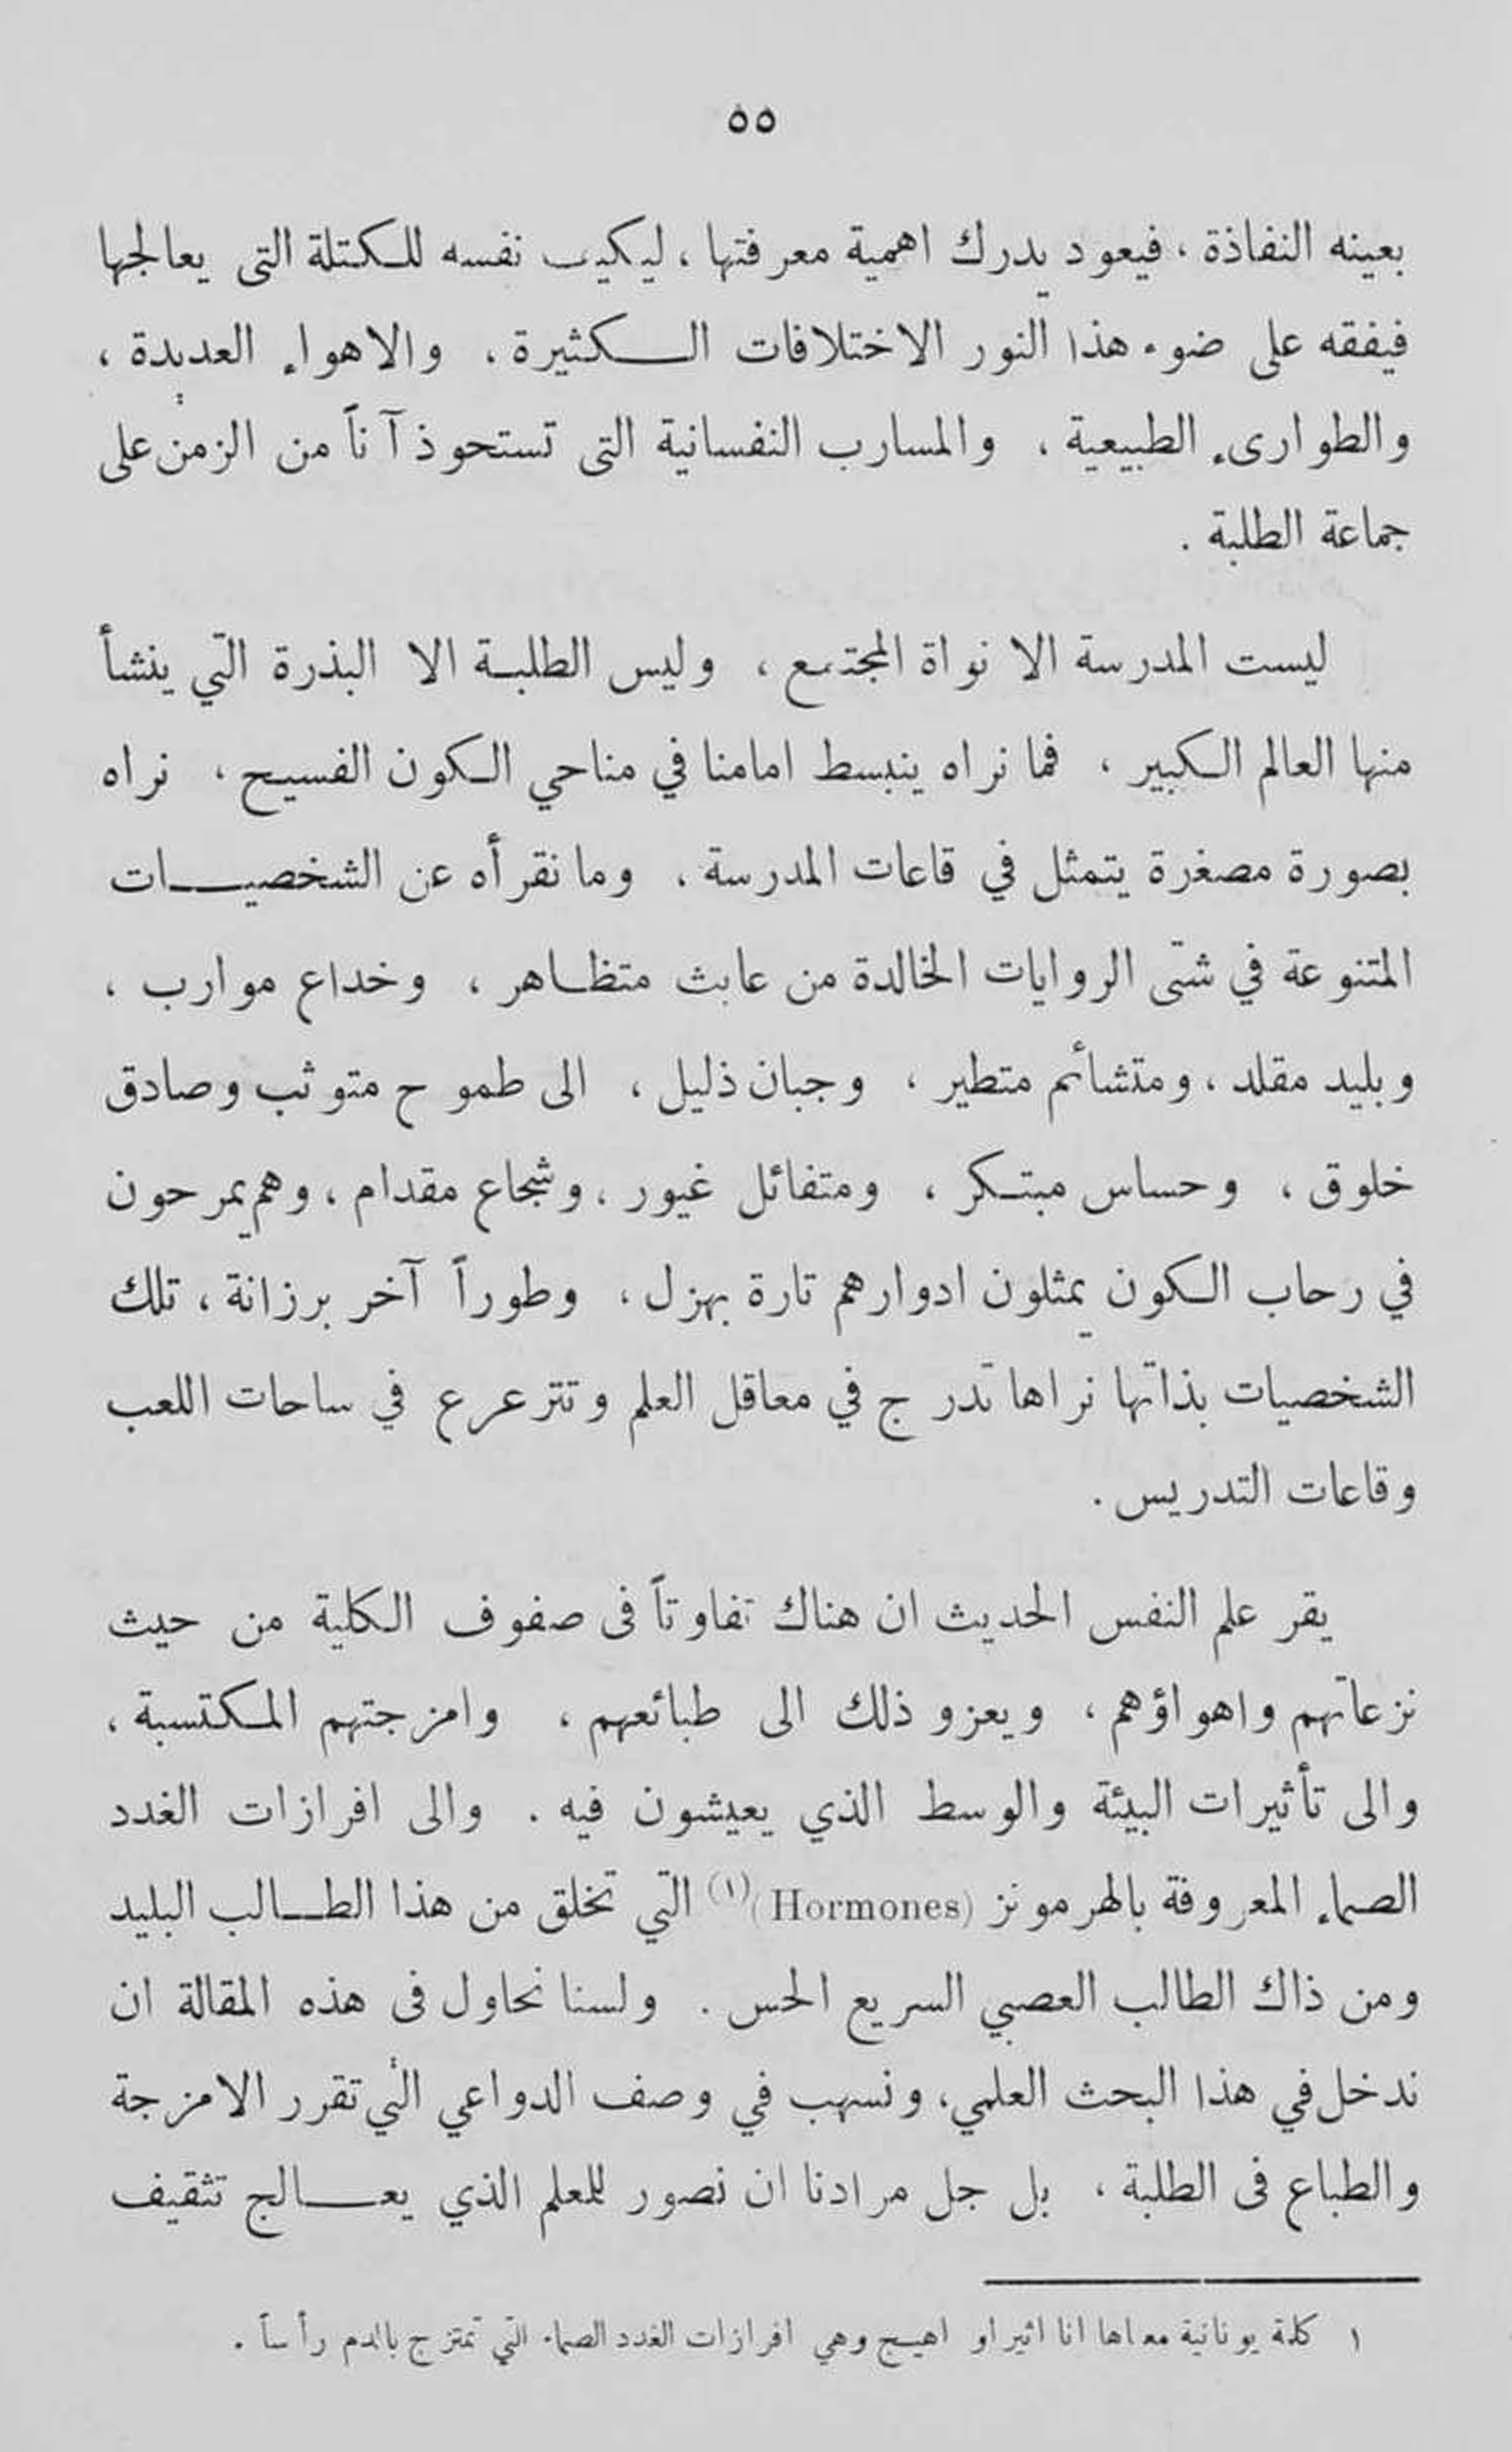 ٥٥
بعينه النفاذة ، فيعود يدرك اهمية معرفتها ، ليكيف نفسه للكتلة التى يعالجها
فيفقه على ضوء هذا النور الاختلافات الكثيرة ، والاهواء العديدة ،
والطوارىء الطبيعية ، والمسارب النفسانية التى تستحوذ آناً من الزمن على
جماعة الطلبة .
ليست المدرسة الا نواة المجتمع ، وليس الطلبة الا البذرة التي ينشأ
منها العالم الكبير ، فما نراه ينبسط امامنا في مناحي الكون الفسيح ، نراه
بصورة مصغرة يتمثل في قاعات المدرسة ، وما نقرأه عن الشخصيات
المتنوعة في شتى الروايات الخالدة من عابث متظاهر ، وخداع موارب ،
وبليد مقلد ، ومتشأئم متطير ، وجبان ذليل ، الى طموح متوثب وصادق
خلوق ، وحساس مبتكر ، ومتفائل غيور ، وشجاع مقدام ، وهم يمرحون
في رحاب الكون يمثلون ادوارهم تارة بهزل ، وطوراً آخر برزانة ، تلك
الشخصيات بذاتها نراها تدرج في معاقل العلم وتترعرع في ساحات اللعب
وقاعات التدريس .
يقر علم النفس الحديث ان هناك تفاوتاً فى صفوف الكلية من حيث
نزعاتهم واهواؤهم ، ويعزو ذلك الى طبائعهم ، وامزجتهم المكتسبة ،
والى تأثيرات البيئة والوسط الذي يعيشون فيه . والى افرازات الغدد
الصماء المعروفة بالهرمونز (Hormones)(١) التي تخلق من هذا الطالب البليد
ومن ذاك الطالب العصبي السريع الحس . ولسنا نحاول فى هذه المقالة ان
ندخل في هذا البحث العلمي ، ونسهب في وصف الدواعي التي تقرر الامزجة
والطباع فى الطلبة ، بل جل مرادنا ان نصور للمعلم الذي يعالج تثقيف
١ كلمة يونانية معناها انا اثير او اهيج وهي افرازات الغدد الصماء التي تمتزج بالدم رأساً .